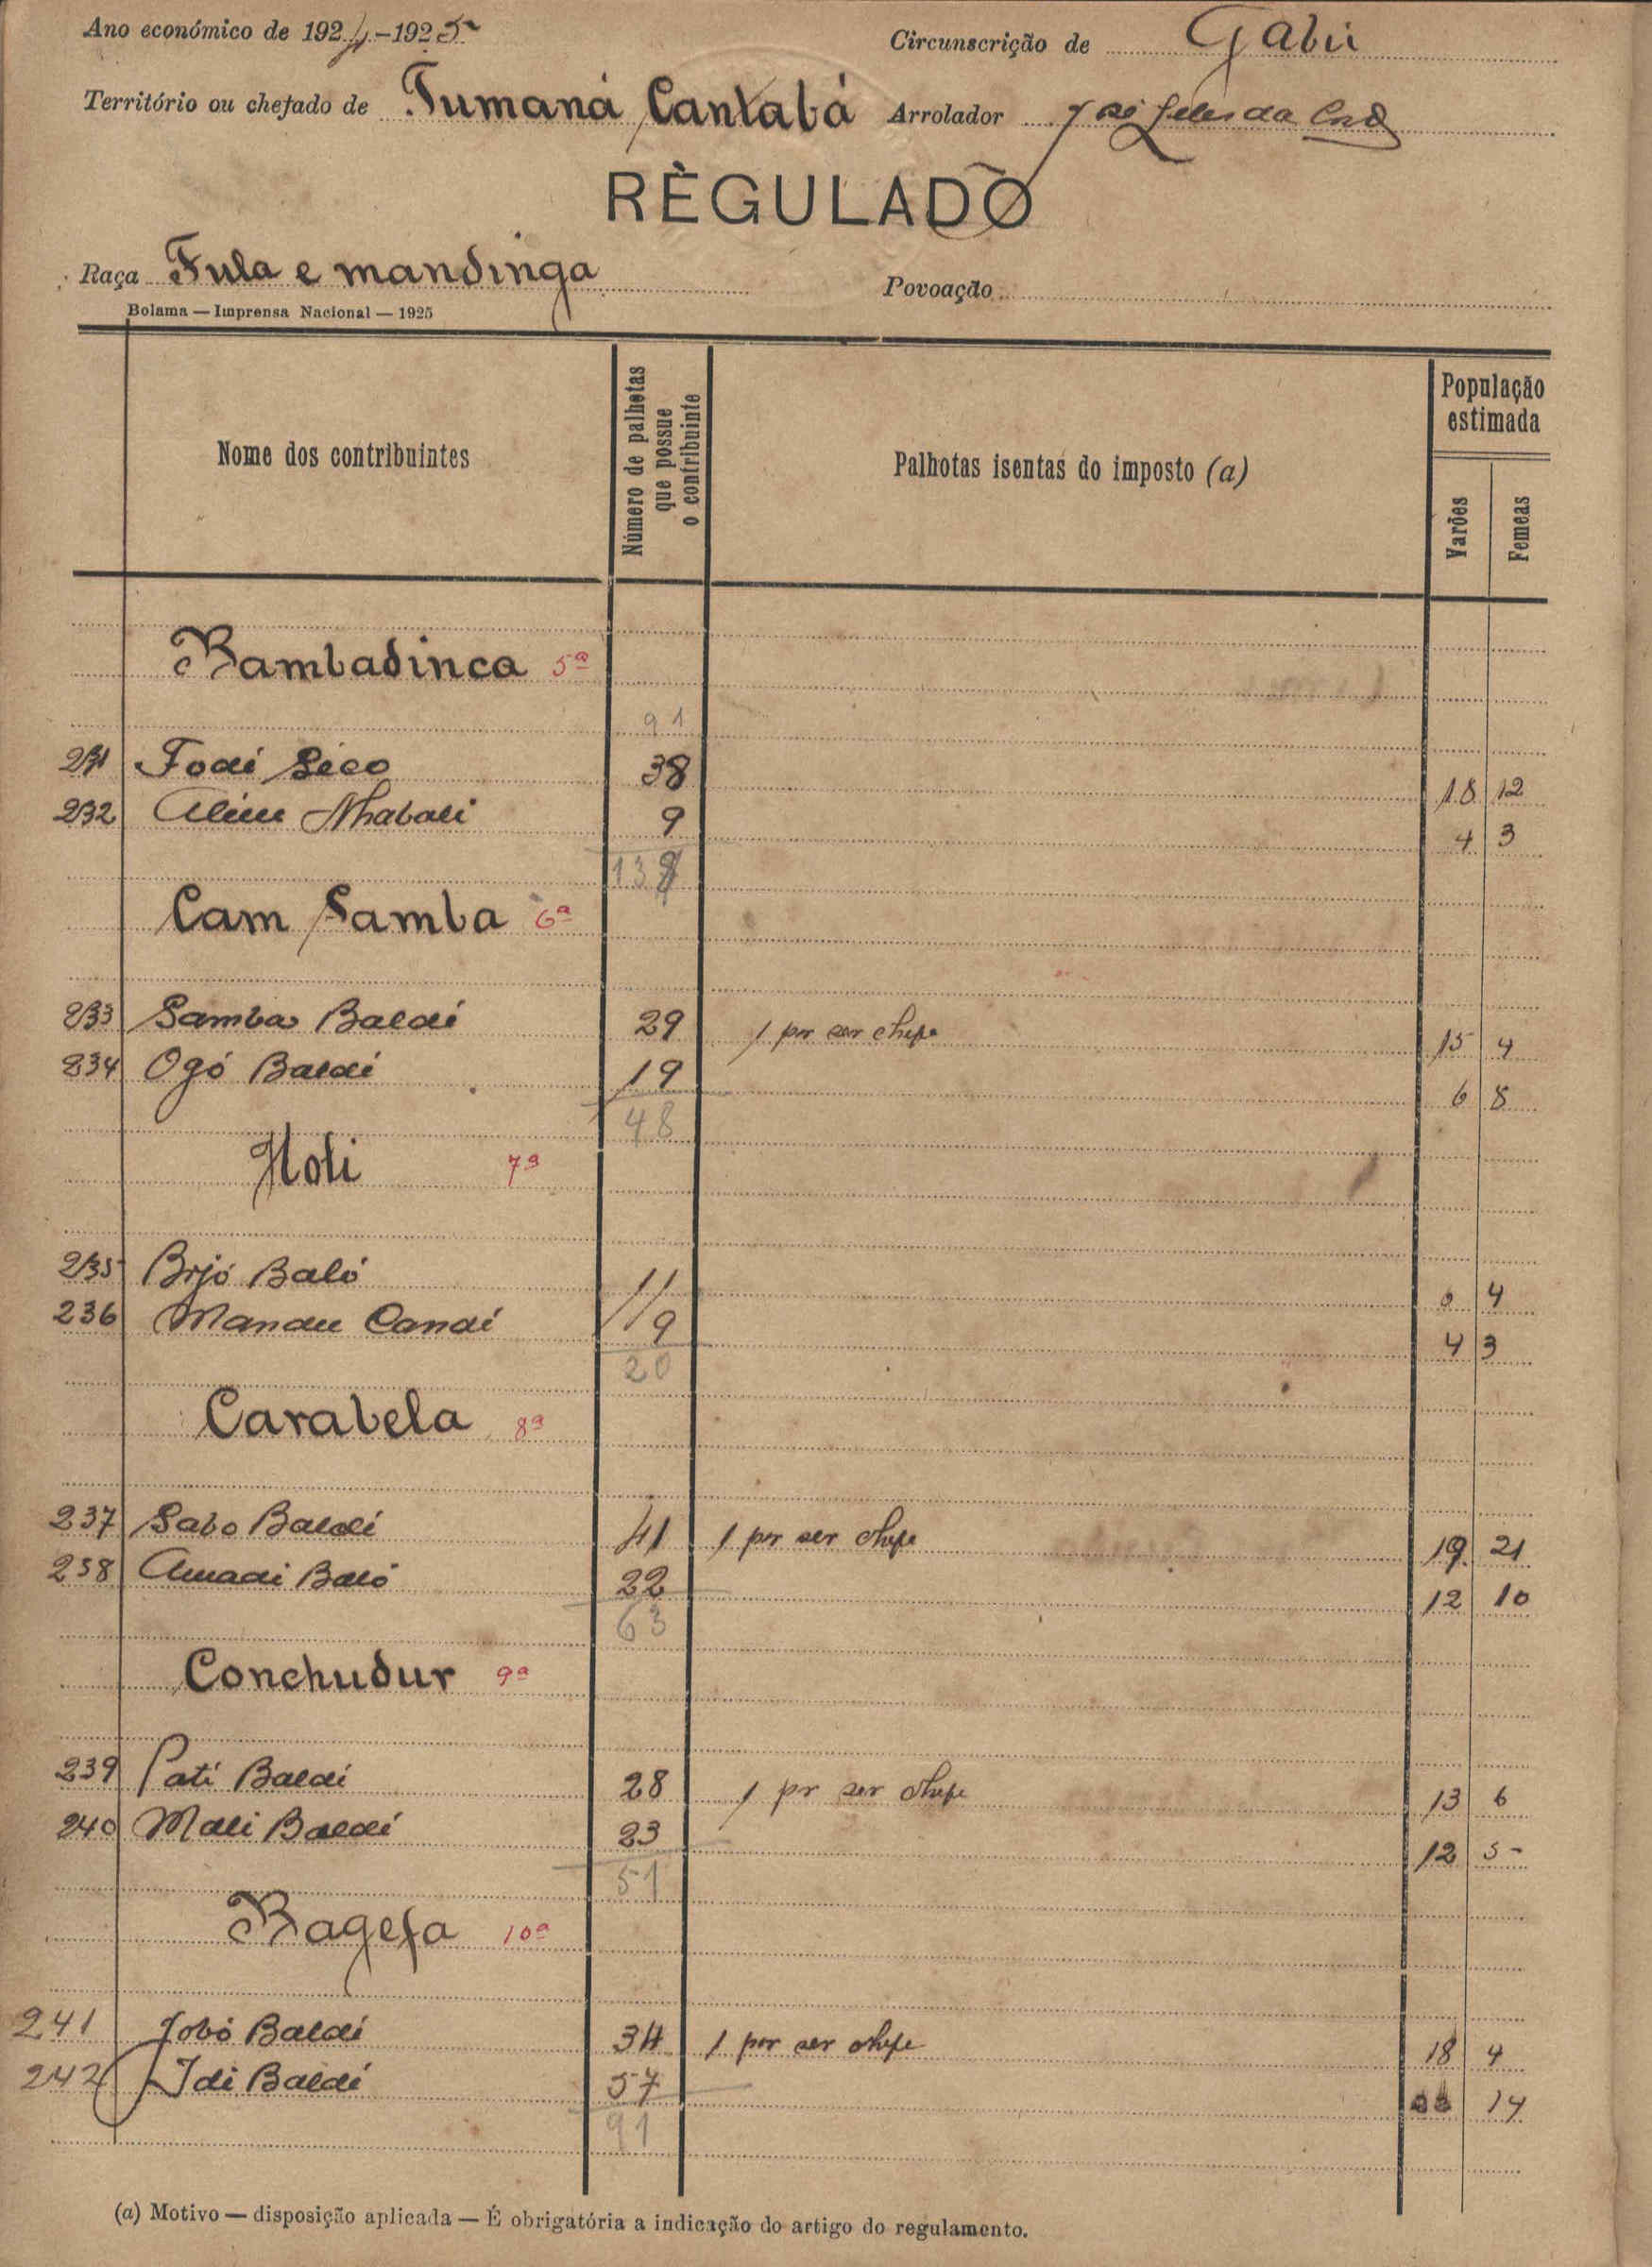 Ano económico de 1924-1925 Circunscrição de Gabú
Território ou chefado de Tumaná Cantabá Arrolador José
RÈGULADO
Raça Fula e mandinga Povoação
Bolama — Imprensa Nacional — 1925
Nome dos contribuintes
Número de palhotas
que possue
o contribuinte
Palhotas isentas do imposto (a)
População
estimada
Varões
Femeas
Bambadinca 5ª
91
231 Fodé Séco 38 18 12
232 Aliu Nhabali 9 4 3
138
Cam Samba 6ª
233 Samba Baldé 29 1 por ser chefe 15 4
234 Ogó Baldé 19 6 8
48
Holi 7ª
235 Brjó Baló 11 4
236 Mandu Candé 9 4 3
20
Carabela 8ª
237 Sabo Baldé 41 1 por ser chefe 19 21
238 Amadi Baló 22 12 10
63
Conchudur 9ª
239 Paté Baldé 28 1 por ser chefe 13 6
240 Mali Baldé 23 12 5
51
Bagefa 10ª
241 Jobó Baldé 34 1 por ser chefe 18 4
242 Idi Baldé 57 14
91
(a) Motivo — disposição aplicada — É obrigatória a indicação do artigo do regulamento.